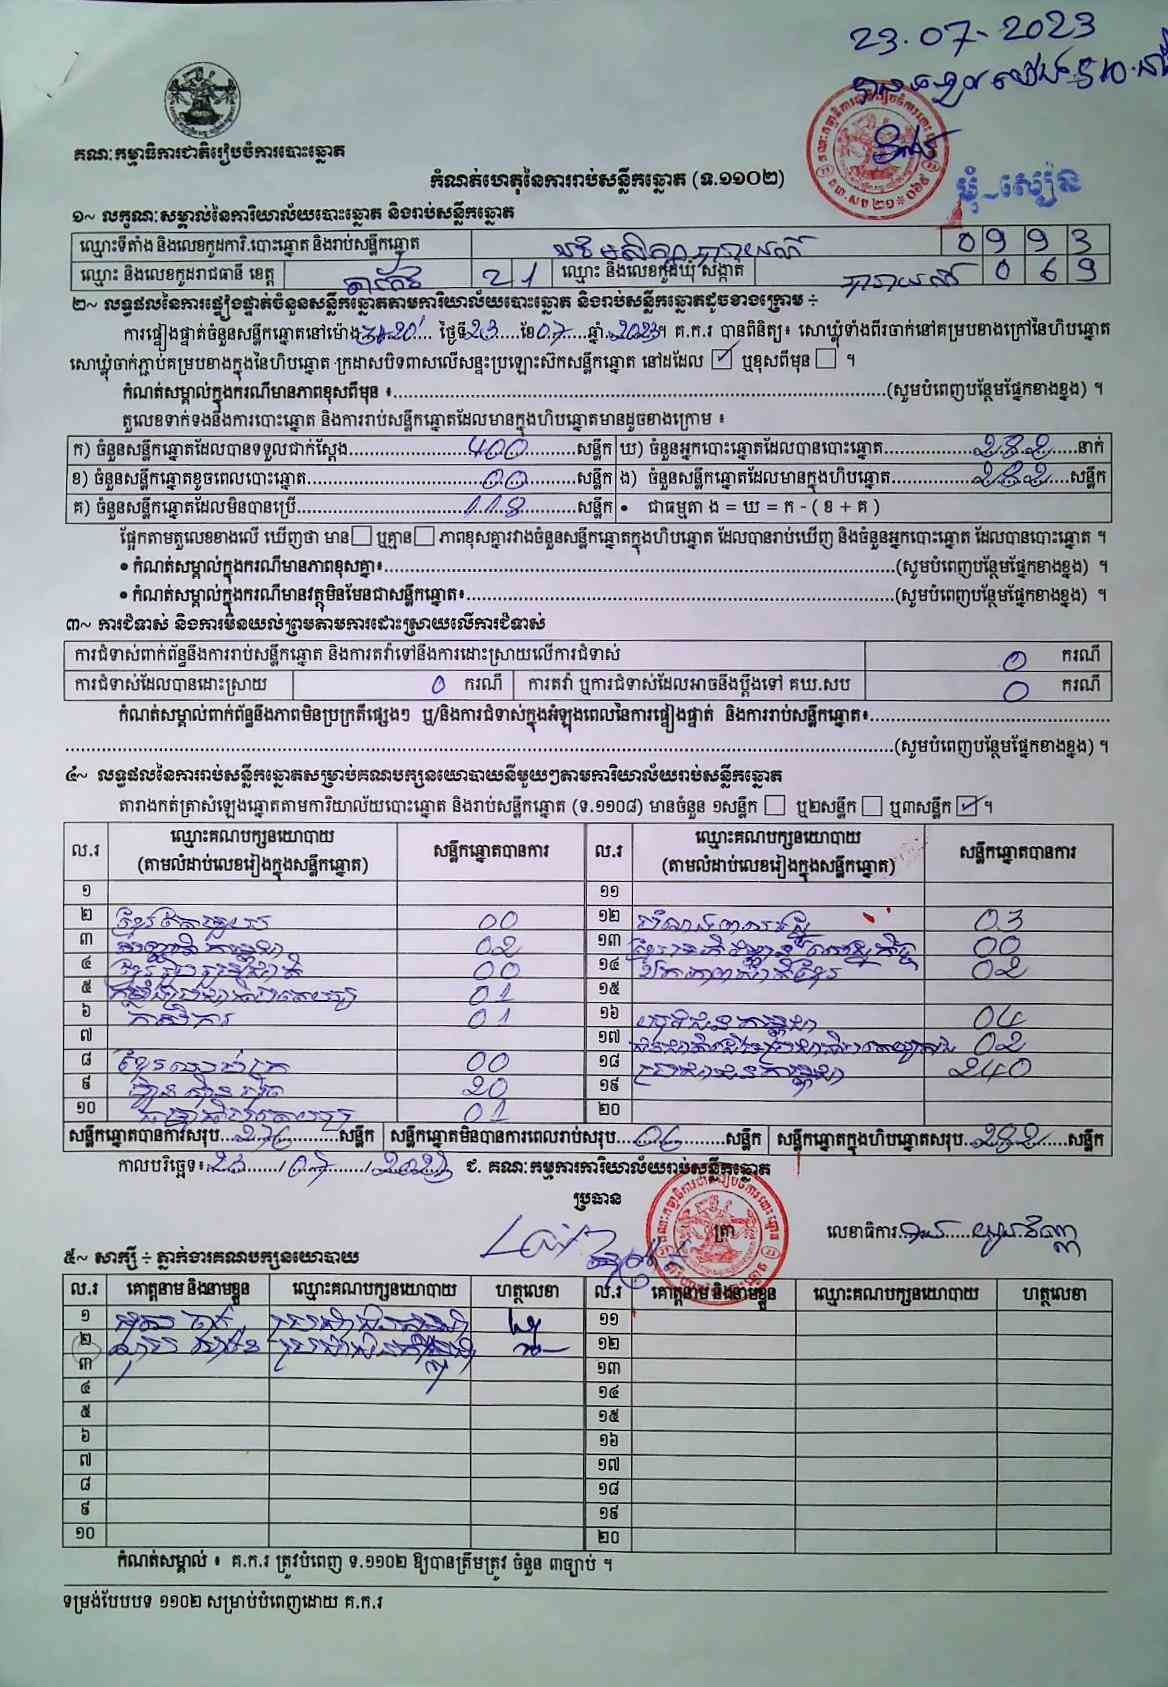 23.07-2023
គណៈកម្មាធិការជាតិរៀបចំការបោះឆ្នោត
កំណត់ហេតុនៃការរាប់សន្លឹកឆ្នោត (ទ.១១០២)
១~ លក្ខណៈសម្គាល់នៃការិយាល័យបោះឆ្នោត និងរាប់សន្លឹកឆ្នោត
ឈ្មោះទីតាំង និងលេខកូដការិ.បោះឆ្នោត និងរាប់សន្លឹកឆ្នោត 0 9 9 3
ឈ្មោះ និងលេខកូដរាជធានី ខេត្ត តាកែវ 2 1 ឈ្មោះ និងលេខកូដឃុំ សង្កាត់ 0 6 9
២~ លទ្ធផលនៃការផ្ទៀងផ្ទាត់ចំនួនសន្លឹកឆ្នោតតាមការិយាល័យបោះឆ្នោត និងរាប់សន្លឹកឆ្នោតដូចខាងក្រោម ÷
ការផ្ទៀងផ្ទាត់ចំនួនសន្លឹកឆ្នោតនៅម៉ោង ថ្ងៃទី 23 ខែ 07 ឆ្នាំ 2023។ គ.ក.រ បានពិនិត្យ៖ សោឃ្លុំទាំងពីរចាក់នៅគម្របខាងក្រៅនៃហិបឆ្នោត
សោឃ្លុំចាក់ភ្ជាប់គម្របខាងក្នុងនៃហិបឆ្នោត ក្រដាសបិទពាសលើសន្ទះប្រឡោះស៊កសន្លឹកឆ្នោត នៅដដែល ☑ ឬខុសពីមុន ☐ ។
កំណត់សម្គាល់ក្នុងករណីមានភាពខុសពីមុន ៖ (សូមបំពេញបន្ថែមផ្នែកខាងខ្នង) ។
តួលេខទាក់ទងនឹងការបោះឆ្នោត និងការរាប់សន្លឹកឆ្នោតដែលមានក្នុងហិបឆ្នោតមានដូចខាងក្រោម ៖
ក) ចំនួនសន្លឹកឆ្នោតដែលបានទទួលជាក់ស្តែង 400 សន្លឹក ឃ) ចំនួនអ្នកបោះឆ្នោតដែលបានបោះឆ្នោត 282 នាក់
ខ) ចំនួនសន្លឹកឆ្នោតខូចពេលបោះឆ្នោត 00 សន្លឹក ង) ចំនួនសន្លឹកឆ្នោតដែលមានក្នុងហិបឆ្នោត 282 សន្លឹក
គ) ចំនួនសន្លឹកឆ្នោតដែលមិនបានប្រើ 118 សន្លឹក • ជាធម្មតា ង = ឃ = ក - ( ខ + គ )
ផ្អែកតាមតួលេខខាងលើ ឃើញថា មាន ☐ ឬគ្មាន ☐ ភាពខុសគ្នារវាងចំនួនសន្លឹកឆ្នោតក្នុងហិបឆ្នោត ដែលបានរាប់ឃើញ និងចំនួនអ្នកបោះឆ្នោត ដែលបានបោះឆ្នោត ។
• កំណត់សម្គាល់ក្នុងករណីមានភាពខុសគ្នា៖ (សូមបំពេញបន្ថែមផ្នែកខាងខ្នង) ។
• កំណត់សម្គាល់ក្នុងករណីមានវត្ថុមិនមែនជាសន្លឹកឆ្នោត៖ (សូមបំពេញបន្ថែមផ្នែកខាងខ្នង) ។
៣~ ការជំទាស់ និងការមិនយល់ព្រមតាមការដោះស្រាយលើការជំទាស់
ការជំទាស់ពាក់ព័ន្ធនឹងការរាប់សន្លឹកឆ្នោត និងការតវ៉ាទៅនឹងការដោះស្រាយលើការជំទាស់ 0 ករណី
ការជំទាស់ដែលបានដោះស្រាយ 0 ករណី ការតវ៉ា ឬការជំទាស់ដែលអាចនឹងប្តឹងទៅ គឃ.សប 0 ករណី
កំណត់សម្គាល់ពាក់ព័ន្ធនឹងភាពមិនប្រក្រតីផ្សេងៗ ឬ/និងការជំទាស់ក្នុងអំឡុងពេលនៃការផ្ទៀងផ្ទាត់ និងការរាប់សន្លឹកឆ្នោត៖
(សូមបំពេញបន្ថែមផ្នែកខាងខ្នង) ។
៤~ លទ្ធផលនៃការរាប់សន្លឹកឆ្នោតសម្រាប់គណបក្សនយោបាយនីមួយៗតាមការិយាល័យរាប់សន្លឹកឆ្នោត
តារាងកត់ត្រាសំឡេងឆ្នោតតាមការិយាល័យបោះឆ្នោត និងរាប់សន្លឹកឆ្នោត (ទ.១១០៨) មានចំនួន ១សន្លឹក ☐ ឬ២សន្លឹក ☐ ឬ៣សន្លឹក ☑ ។
ល.រ ឈ្មោះគណបក្សនយោបាយ (តាមលំដាប់លេខរៀងក្នុងសន្លឹកឆ្នោត) សន្លឹកឆ្នោតបានការ ល.រ ឈ្មោះគណបក្សនយោបាយ (តាមលំដាប់លេខរៀងក្នុងសន្លឹកឆ្នោត) សន្លឹកឆ្នោតបានការ
១ ១១
២ 00 ១២ 03
៣ 02 ១៣ 00
៤ 00 ១៤ 02
៥ 01 ១៥
៦ កសិករ 01 ១៦ 04
៧ ១៧ 02
៨ 00 ១៨ ប្រជាជនកម្ពុជា 240
៩ ហ៊្វុនស៊ិនប៉ិច 20 ១៩
១០ 01 ២០
សន្លឹកឆ្នោតបានការសរុប 276 សន្លឹក សន្លឹកឆ្នោតមិនបានការពេលរាប់សរុប 06 សន្លឹក សន្លឹកឆ្នោតក្នុងហិបឆ្នោតសរុប 282 សន្លឹក
កាលបរិច្ឆេទ៖ 23/07/2023 ជ. គណៈកម្មការការិយាល័យរាប់សន្លឹកឆ្នោត
ប្រធាន
ត្រា
លេខាធិការ
៥~ សាក្សី ÷ ភ្នាក់ងារគណបក្សនយោបាយ
ល.រ គោត្តនាម និងនាមខ្លួន ឈ្មោះគណបក្សនយោបាយ ហត្ថលេខា ល.រ គោត្តនាម និងនាមខ្លួន ឈ្មោះគណបក្សនយោបាយ ហត្ថលេខា
១ ប្រជាជនកម្ពុជា ១១
២ ប្រជាជនកម្ពុជា ១២
៣ ១៣
៤ ១៤
៥ ១៥
៦ ១៦
៧ ១៧
៨ ១៨
៩ ១៩
១០ ២០
កំណត់សម្គាល់ ៖ គ.ក.រ ត្រូវបំពេញ ទ.១១០២ ឱ្យបានត្រឹមត្រូវ ចំនួន ៣ច្បាប់ ។
ទម្រង់បែបបទ ១១០២ សម្រាប់បំពេញដោយ គ.ក.រ